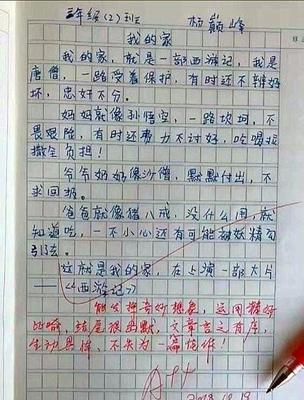 三年级(2)班 杨巅峰
我的家
我的家，就是一部西游记，我是
唐僧，一路受着保护，有时还不辩好
坏，忠奸不分。
妈妈就像孙悟空，一路坎坷，不
畏艰险，有时还费力不讨好，吃喝拉
撒全负担！
爷爷奶奶像沙僧，默默付出，不
求回报。
爸爸就像猪八戒，没什么用，就
知道吃，一不小心还有可能被妖精勾
引去。
这就是我的家，在上演一部大片
——《西游记》
能发挥奇妙想象，运用精妙
比喻，结尾很幽默，文章言之有序，
生动具体，不失为一篇佳作！
A++